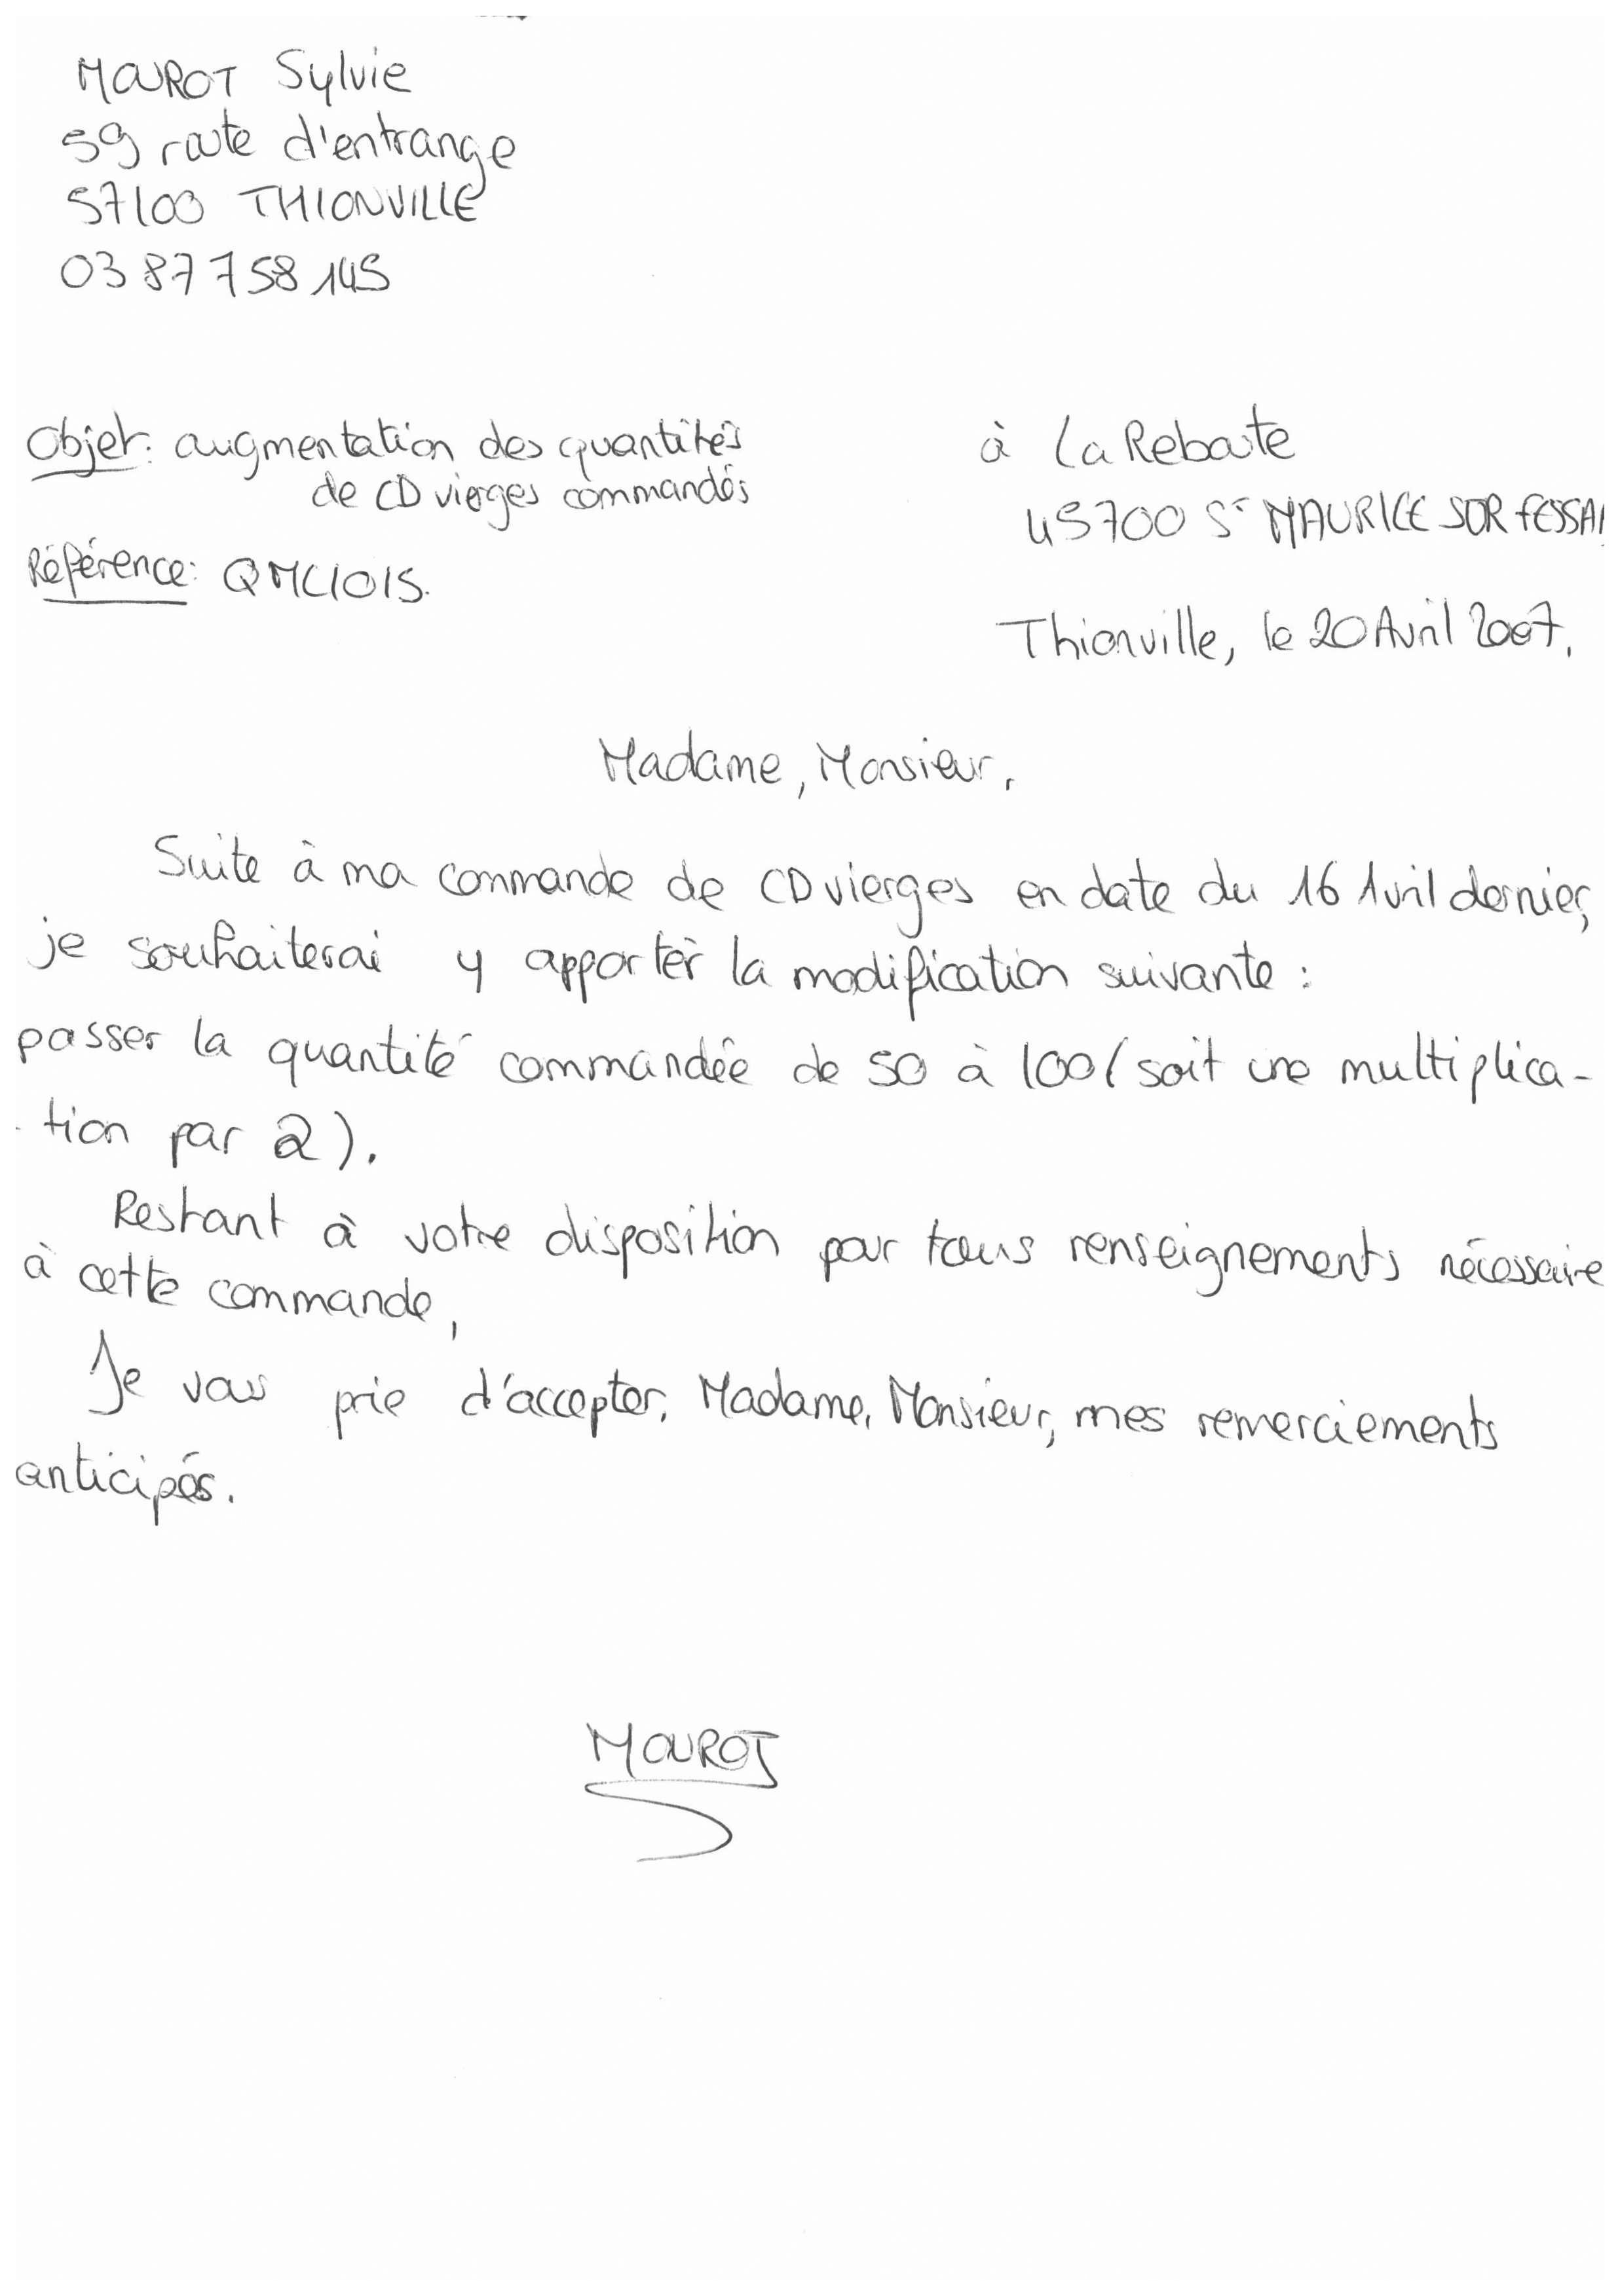 MOUROT Sylvie
59 route d'entrange
57100 THIONVILLE
03 87 758 145
Objet: augmentation des quantités
de CD vierges commandés
Référence: QMCIO15.
à La Reboute
45700 St MAURICE SUR FESSAI
Thionville, le 20 Avril 2007.
Madame, Monsieur,
Suite à ma commande de CD vierges en date du 16 Avril dernier,
je souhaiterai y apporter la modification suivante :
passer la quantité commandée de 50 à 100 (soit une multiplica-
tion par 2).
Restant à votre disposition pour tous renseignements nécessaire
à cette commande,
Je vous prie d'accepter, Madame, Monsieur, mes remerciements
anticipés.
MOUROT